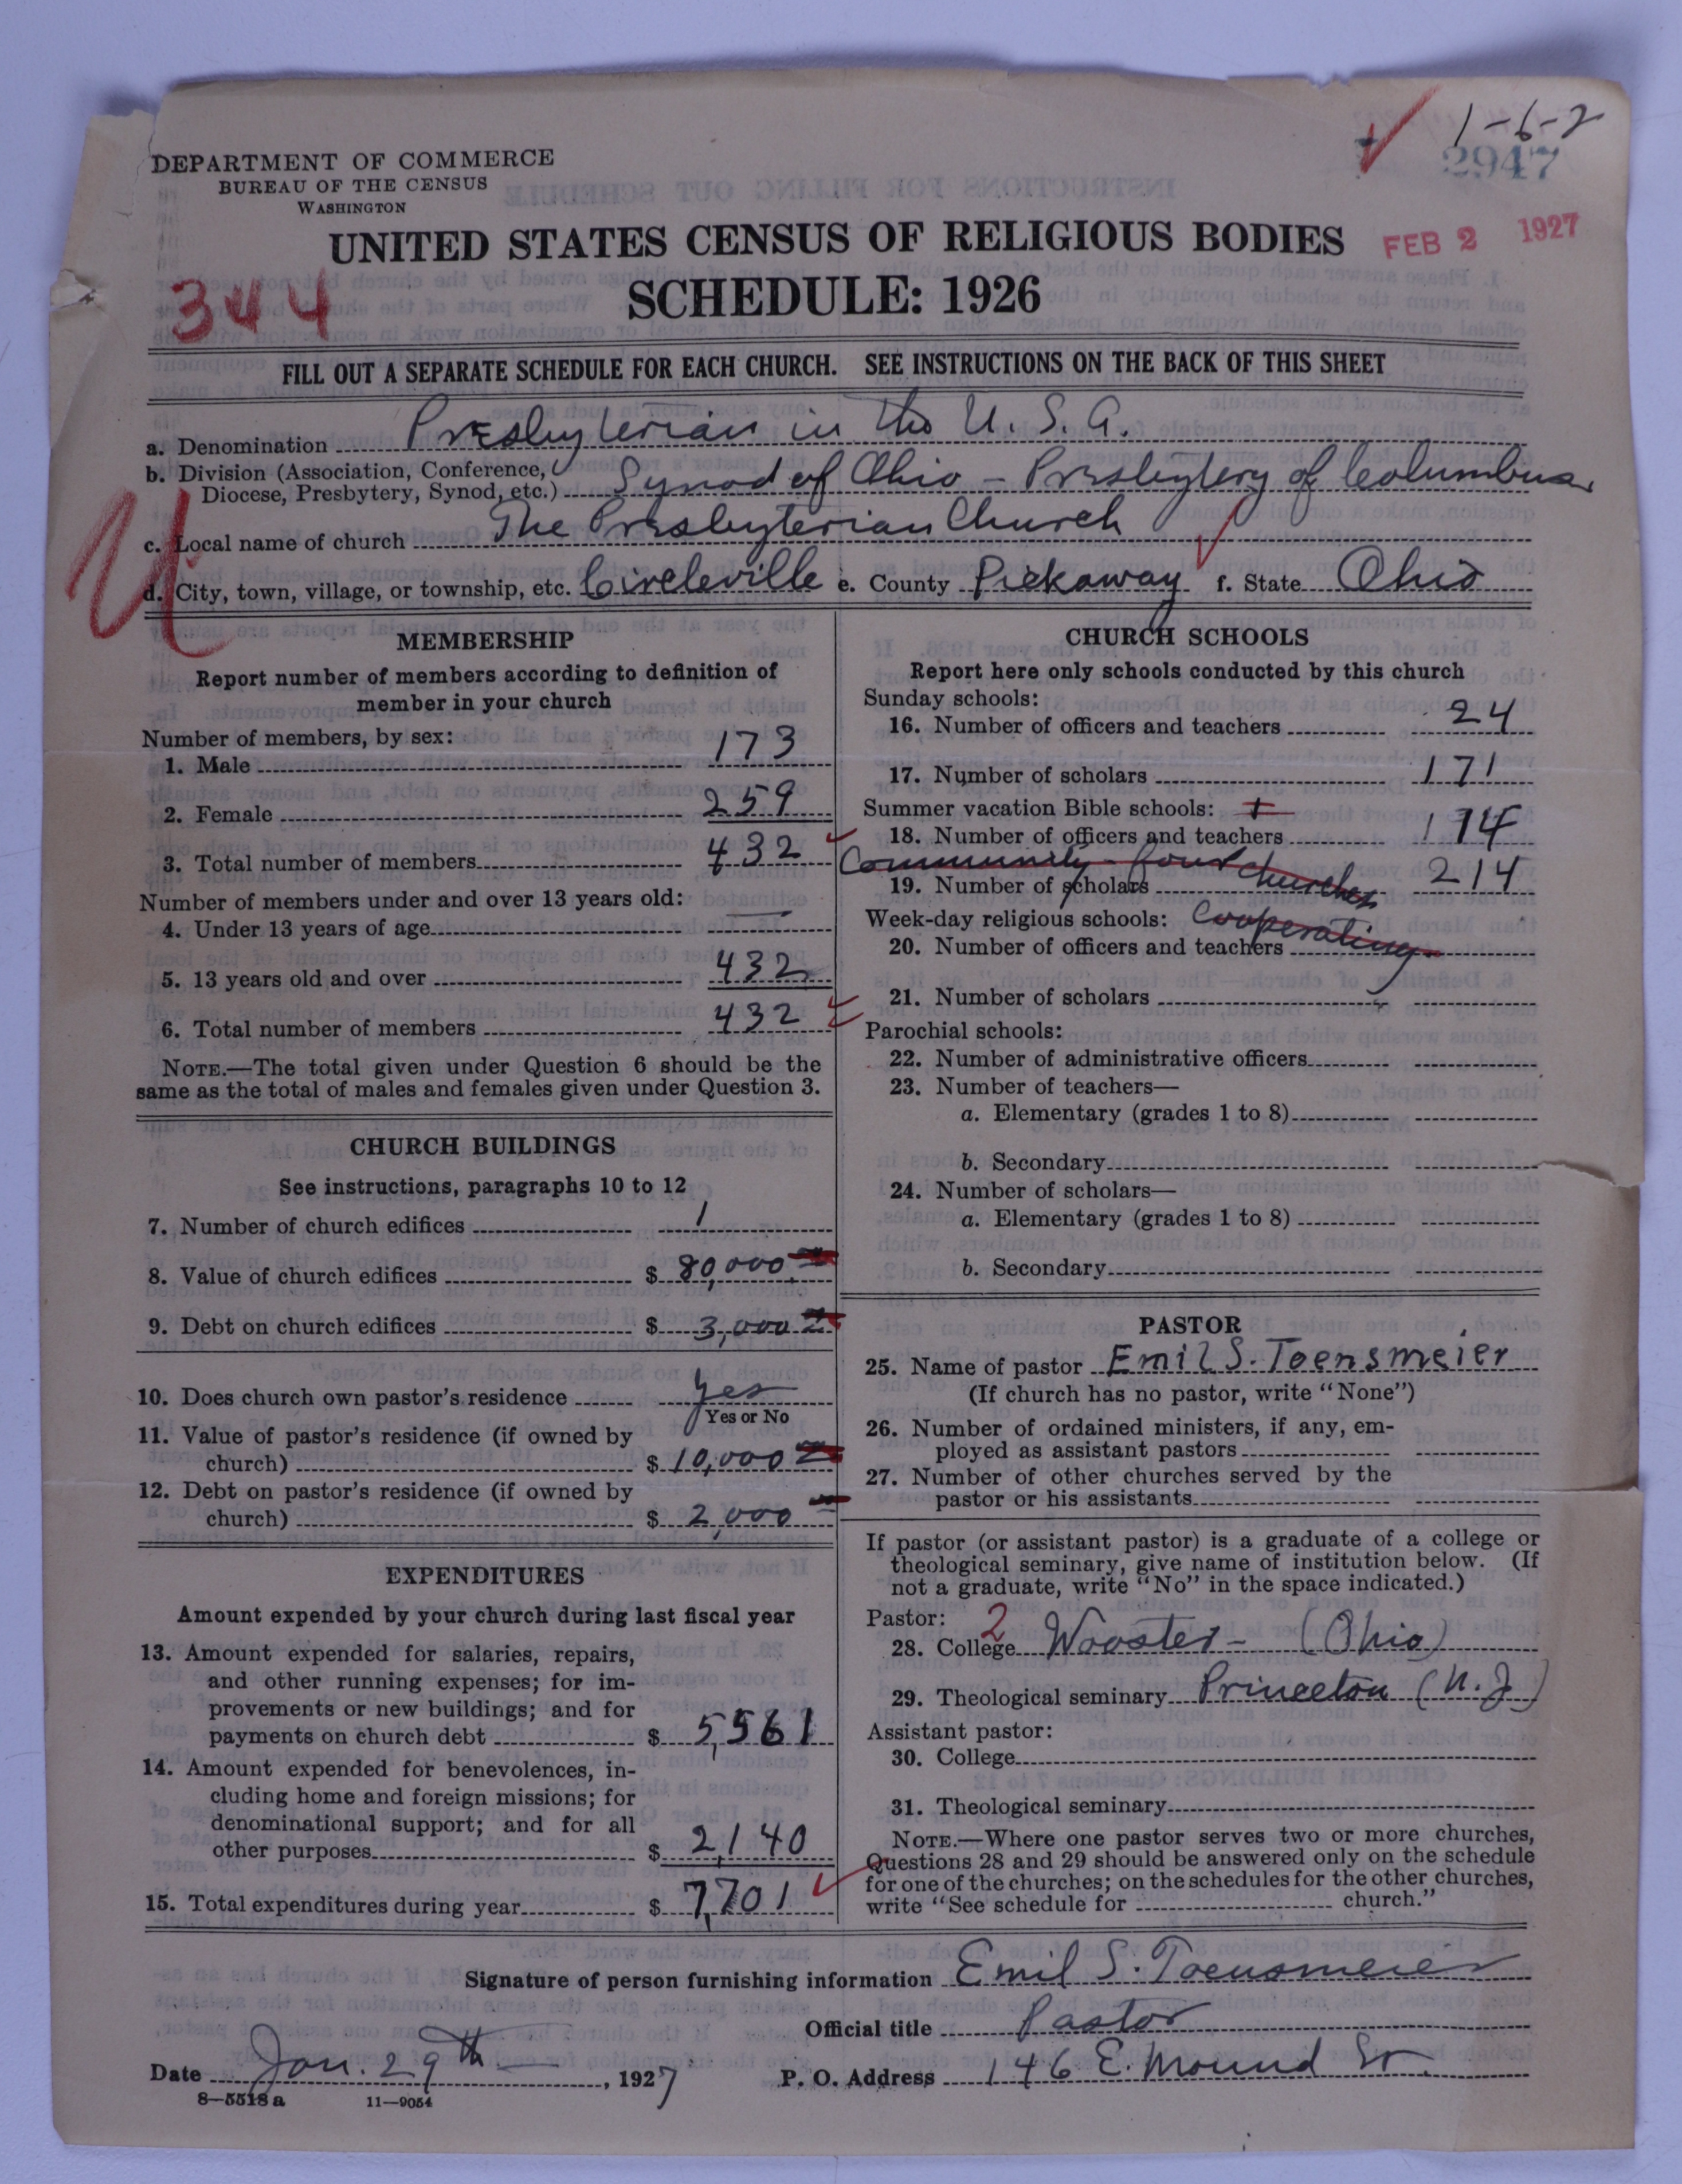 1-6-2
2947
DEPARTMENT OF COMMERCE
BUREAU OF THE CENSUS
WASHINGTON
UNITED STATES CENSUS OF RELIGIOUS BODIES
FEB 2 1927
344
SCHEDULE: 1926
FILL OUT A SEPARATE SCHEDULE FOR EACH CHURCH. SEE INSTRUCTIONS ON THE BACK OF THIS SHEET
a. Denomination Presbyterian in the U. S. A.
b. Division (Association, Conference,
Diocese, Presbytery, Synod, etc.) Synod of Ohio - Presbytery of Columbus
c. Local name of church The Presbyterian Church
d. City, town, village, or township, etc. Circleville e. County Pickaway f. State Ohio
MEMBERSHIP
Report number of members according to definition of
member in your church
Number of members, by sex:
1. Male 173
2. Female 259
3. Total number of members 432
Number of members under and over 13 years old:
4. Under 13 years of age —
5. 13 years old and over 432
6. Total number of members 432
NOTE.—The total given under Question 6 should be the
same as the total of males and females given under Question 3.
CHURCH BUILDINGS
See instructions, paragraphs 10 to 12
7. Number of church edifices 1
8. Value of church edifices $ 80,000
9. Debt on church edifices $ 3,000
10. Does church own pastor's residence Yes
Yes or No
11. Value of pastor's residence (if owned by
church) $ 10,000
12. Debt on pastor's residence (if owned by
church) $ 2,000
EXPENDITURES
Amount expended by your church during last fiscal year
13. Amount expended for salaries, repairs,
and other running expenses; for im-
provements or new buildings; and for
payments on church debt $ 5,561
14. Amount expended for benevolences, in-
cluding home and foreign missions; for
denominational support; and for all
other purposes $ 2,140
15. Total expenditures during year $ 7,701
CHURCH SCHOOLS
Report here only schools conducted by this church
Sunday schools:
16. Number of officers and teachers 24
17. Number of scholars 171
Summer vacation Bible schools: +
18. Number of officers and teachers 14
Community - four churches
19. Number of scholars 214
Week-day religious schools: Cooperating
20. Number of officers and teachers
21. Number of scholars
Parochial schools:
22. Number of administrative officers
23. Number of teachers—
a. Elementary (grades 1 to 8)
b. Secondary
24. Number of scholars—
a. Elementary (grades 1 to 8)
b. Secondary
PASTOR
25. Name of pastor Emil S. Toensmeier
(If church has no pastor, write "None")
26. Number of ordained ministers, if any, em-
ployed as assistant pastors
27. Number of other churches served by the
pastor or his assistants
If pastor (or assistant pastor) is a graduate of a college or
theological seminary, give name of institution below. (If
not a graduate, write "No" in the space indicated.)
Pastor: 2
28. College Wooster - (Ohio)
29. Theological seminary Princeton (N. J)
Assistant pastor:
30. College
31. Theological seminary
NOTE.—Where one pastor serves two or more churches,
Questions 28 and 29 should be answered only on the schedule
for one of the churches; on the schedules for the other churches,
write "See schedule for church."
Signature of person furnishing information Emil S. Toensmeier
Official title Pastor
Date Jan. 29th, 1927 P. O. Address 146 E. Mound St.
8—5518 a 11—9054